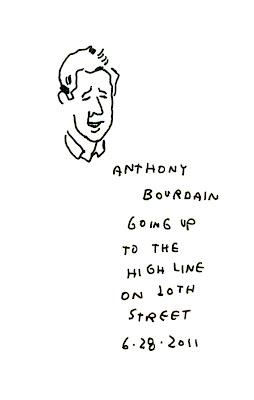 ANTHONY
BOURDAIN
GOING UP
TO THE
HIGH LINE
ON 20TH
STREET
6.28.2011